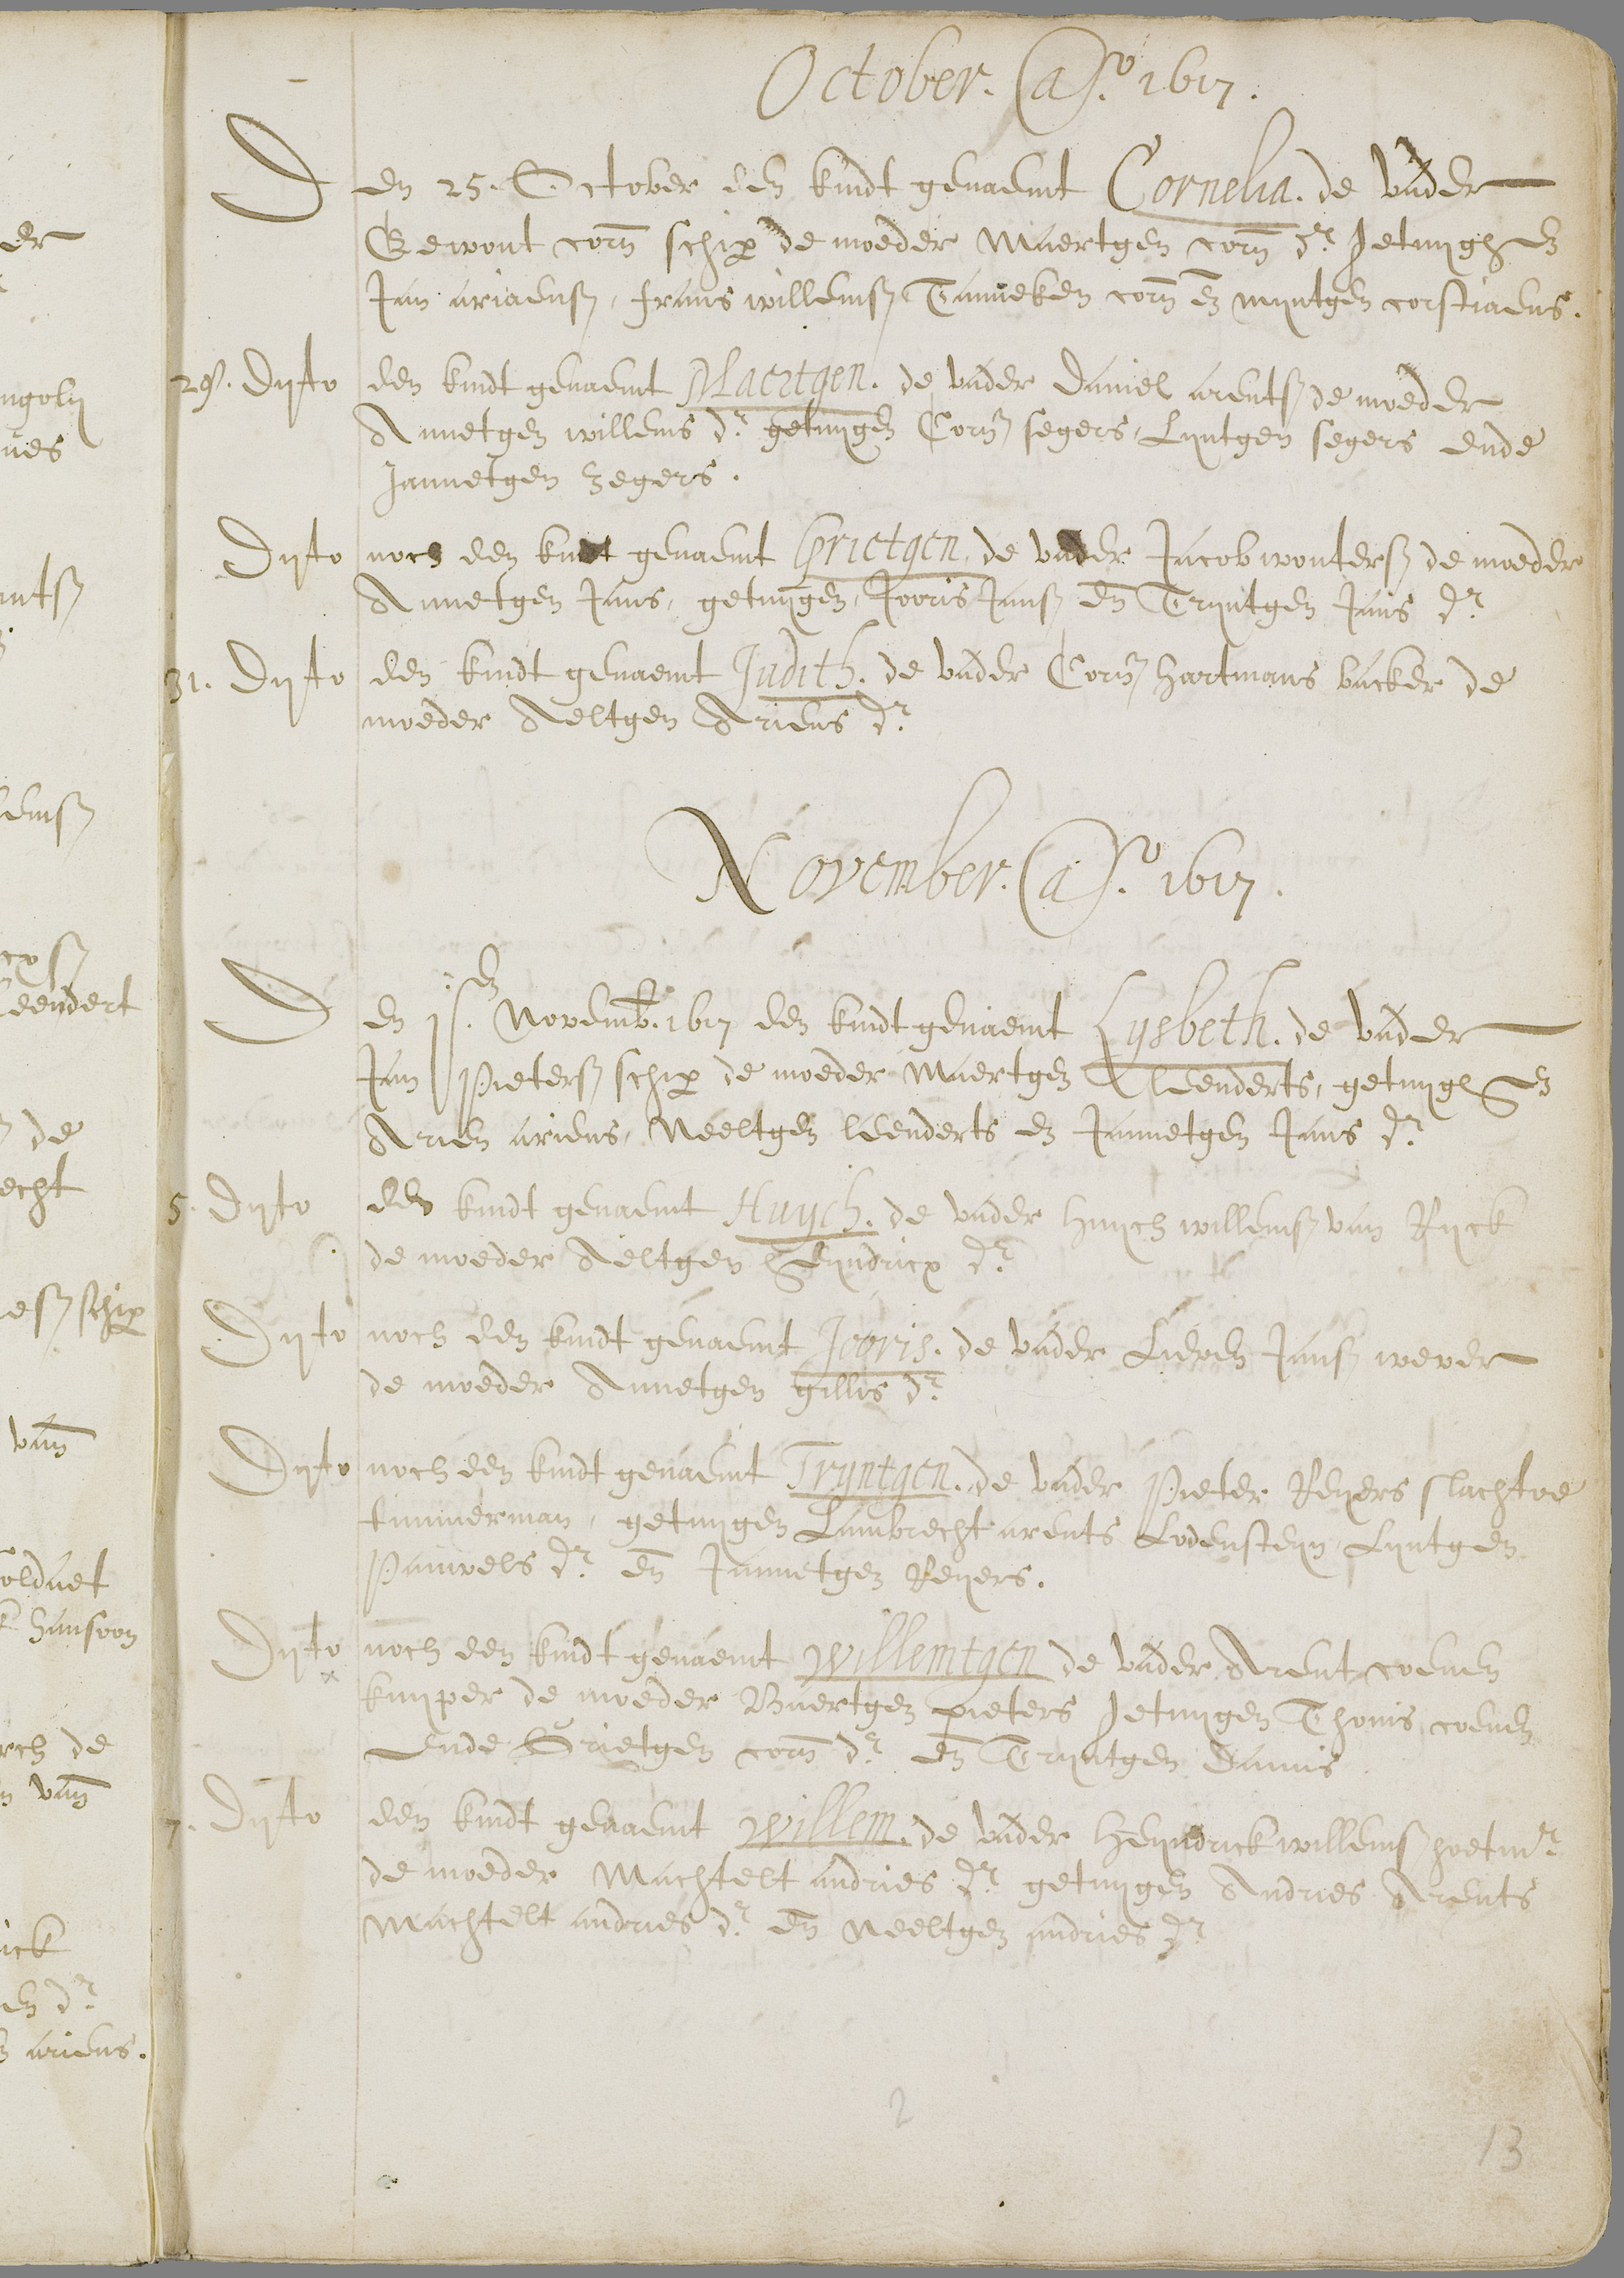 October. a.o 1617.
Den 25. October een kindt genaemt Cornelia. de vader
Eewout corn schip de moeder Maertgen corn dr getuyghen
Jan ariaensz, frans willemsz Tanneken corn en mijntgen corstiaens.
29. Dijto een kindt genaemt Maertgen. de vader Daniel arentsz de moeder
Annetgen willems dr getuygen Corn segers, Lijntgen segers ende
Jannetgen Zegers.
Dijto noch een kindt genaemt Grietgen, de vader Jacob woutersz de moeder
Annetgen Jans, getuygen, Jooris Jansz en Trijntgen Jans dr
31. Dijto een kindt genaemt Judith. de vader Corn hartmans backer de
moeder Aeltgen Ariens dr
November. a.o 1617.
Den 1en. Novemb. 1617 een kindt genaemt Lysbeth. de vader
Jan Pietersz schip de moeder Maertgen Leenderts, getuyghen
Arien ariens, Neeltgen leenderts en Jannetgen Jans dr
5. Dijto een kindt genaemt Huych. de vader Huych willemsz van Rijck
de moeder Aeltgen Heyndricx dr
Dijto noch een kindt genaemt Jooris. de vader Lieven Jansz wever
de moeder Annetgen gillis dr
Dijto noch een kindt genaemt Tryntgen. de vader Pieter Reyers slachtoe
timmerman, getuygen Lambrecht arents Lodensteyn Lijntgen
Pauwels dr en Jannetgen Reyers.
Dijto noch een kindt genaemt Willemtgen de vader Arent coenen
kuyper de moeder Maertgen pieters getuygen Thonis coenen
Ende Grietgen corn dr en Trijntgen Dammis
7. Dijto een kindt genaemt Willem. de vader Heyndrick willemsz hoetmr
de moeder Machtelt andries dr getuygen Andries Arents
Machtelt andries dr en Neeltgen andries dr
2
13